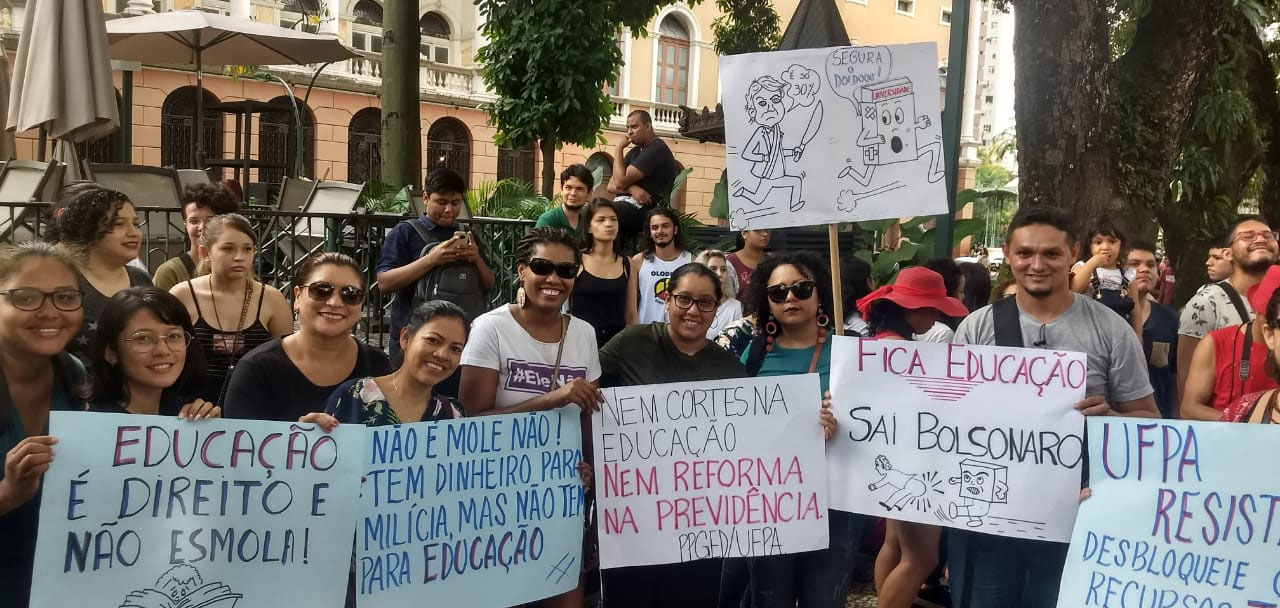 É SÓ
30%
SEGURA
O
DOIDOOO!
UNIVERSIDADE
OLODUM
#EleNã
EDUCAÇÃO
É DIREITO E
NÃO ESMOLA!
NÃO É MOLE NÃO!
TEM DINHEIRO PARA
MILÍCIA, MAS NÃO TEM
PARA EDUCAÇÃO
NEM CORTES NA
EDUCAÇÃO
NEM REFORMA
NA PREVIDÊNCIA.
PPGED/UFPA.
FICA EDUCAÇÃO
SAI BOLSONARO
UFPA
RESIST
DESBLOQUEIE
RECURSOS